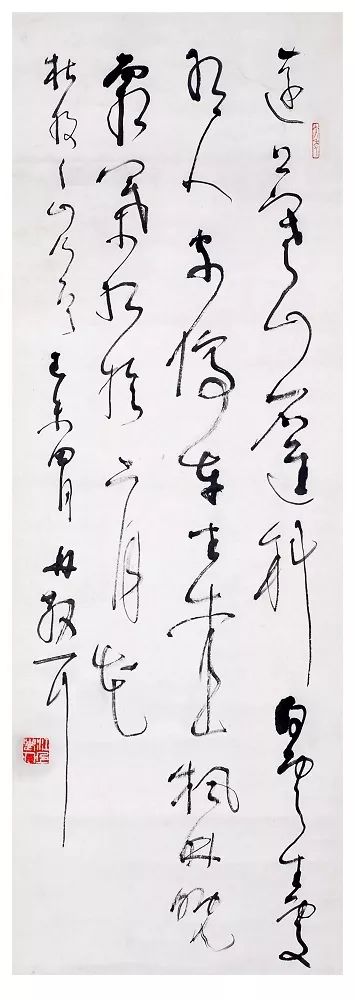 遠上寒山石徑斜白雲生處
有人家停車坐愛楓林晚
霜葉紅於二月花
杜牧之山行己未四月林散耳